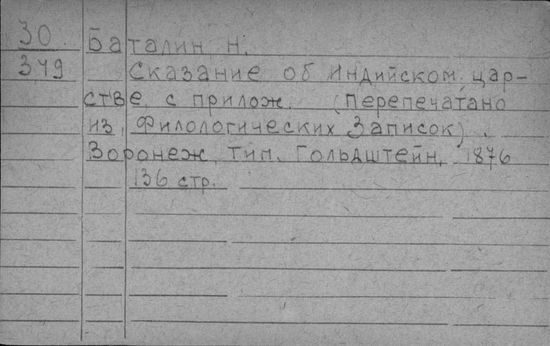 30 Баталин Н.
349 Сказание об Индийском цар-
стве с прилож. (Перепечатано
из Филологических Записок).
Воронеж, тип. Гольдштейн, 1876
136 стр.